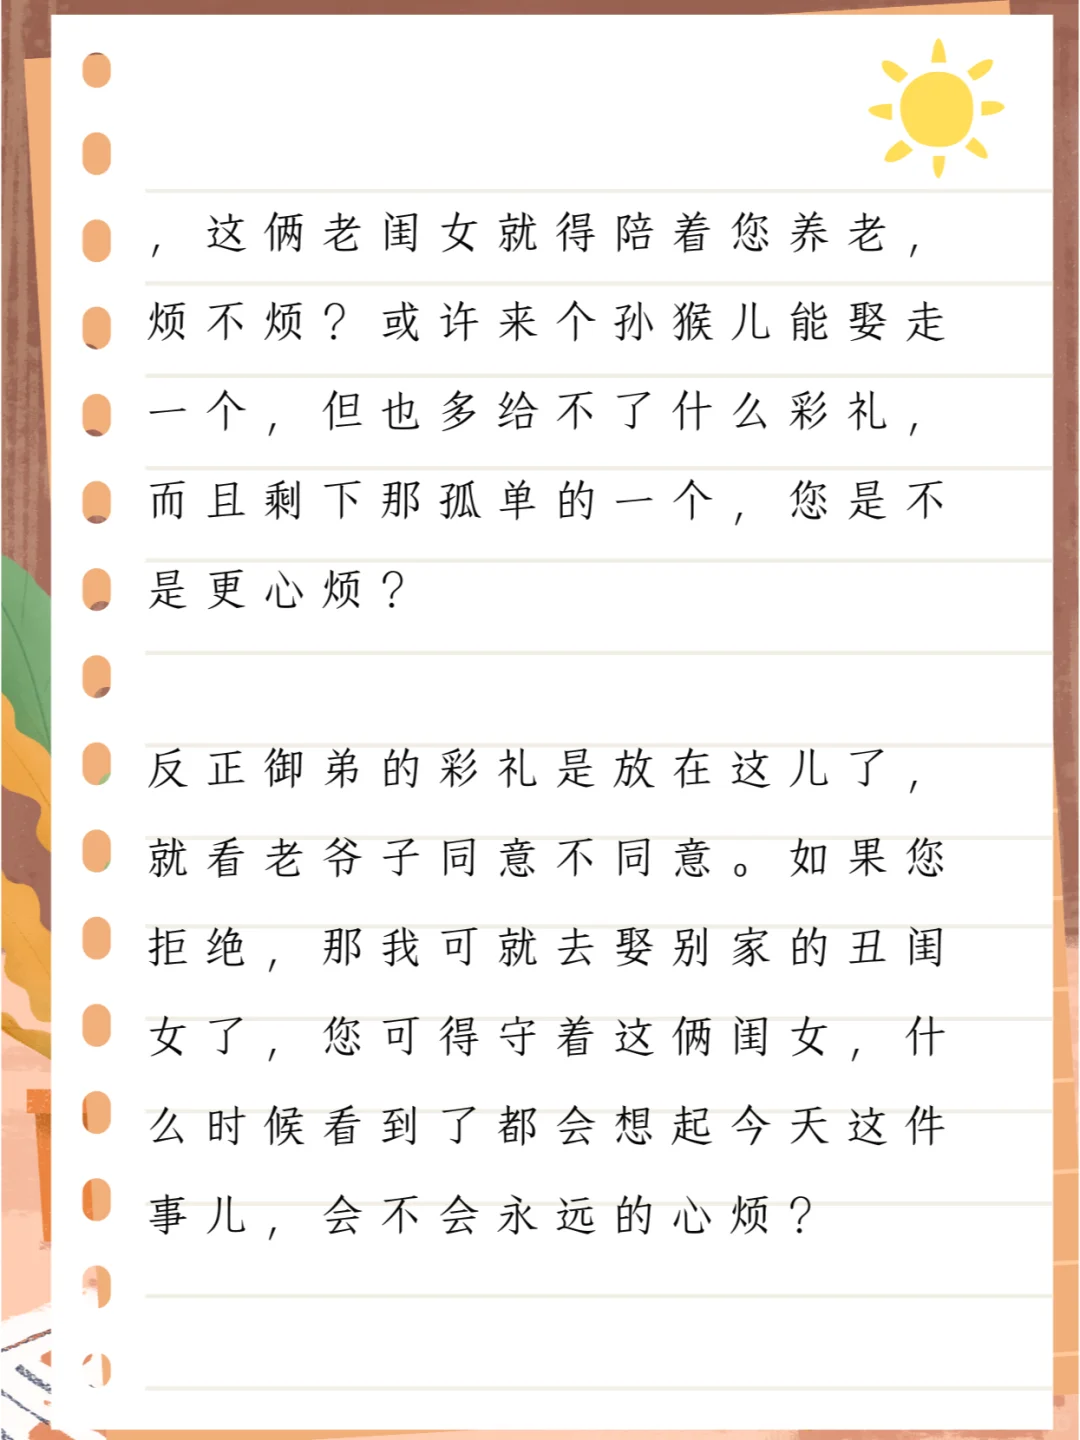 ，这俩老闺女就得陪着您养老，
烦不烦？或许来个孙猴儿能娶走
一个，但也多给不了什么彩礼，
而且剩下那孤单的一个，您是不
是更心烦？
反正御弟的彩礼是放在这儿了，
就看老爷子同意不同意。如果您
拒绝，那我可就去娶别家的丑闺
女了，您可得守着这俩闺女，什
么时候看到了都会想起今天这件
事儿，会不会永远的心烦？